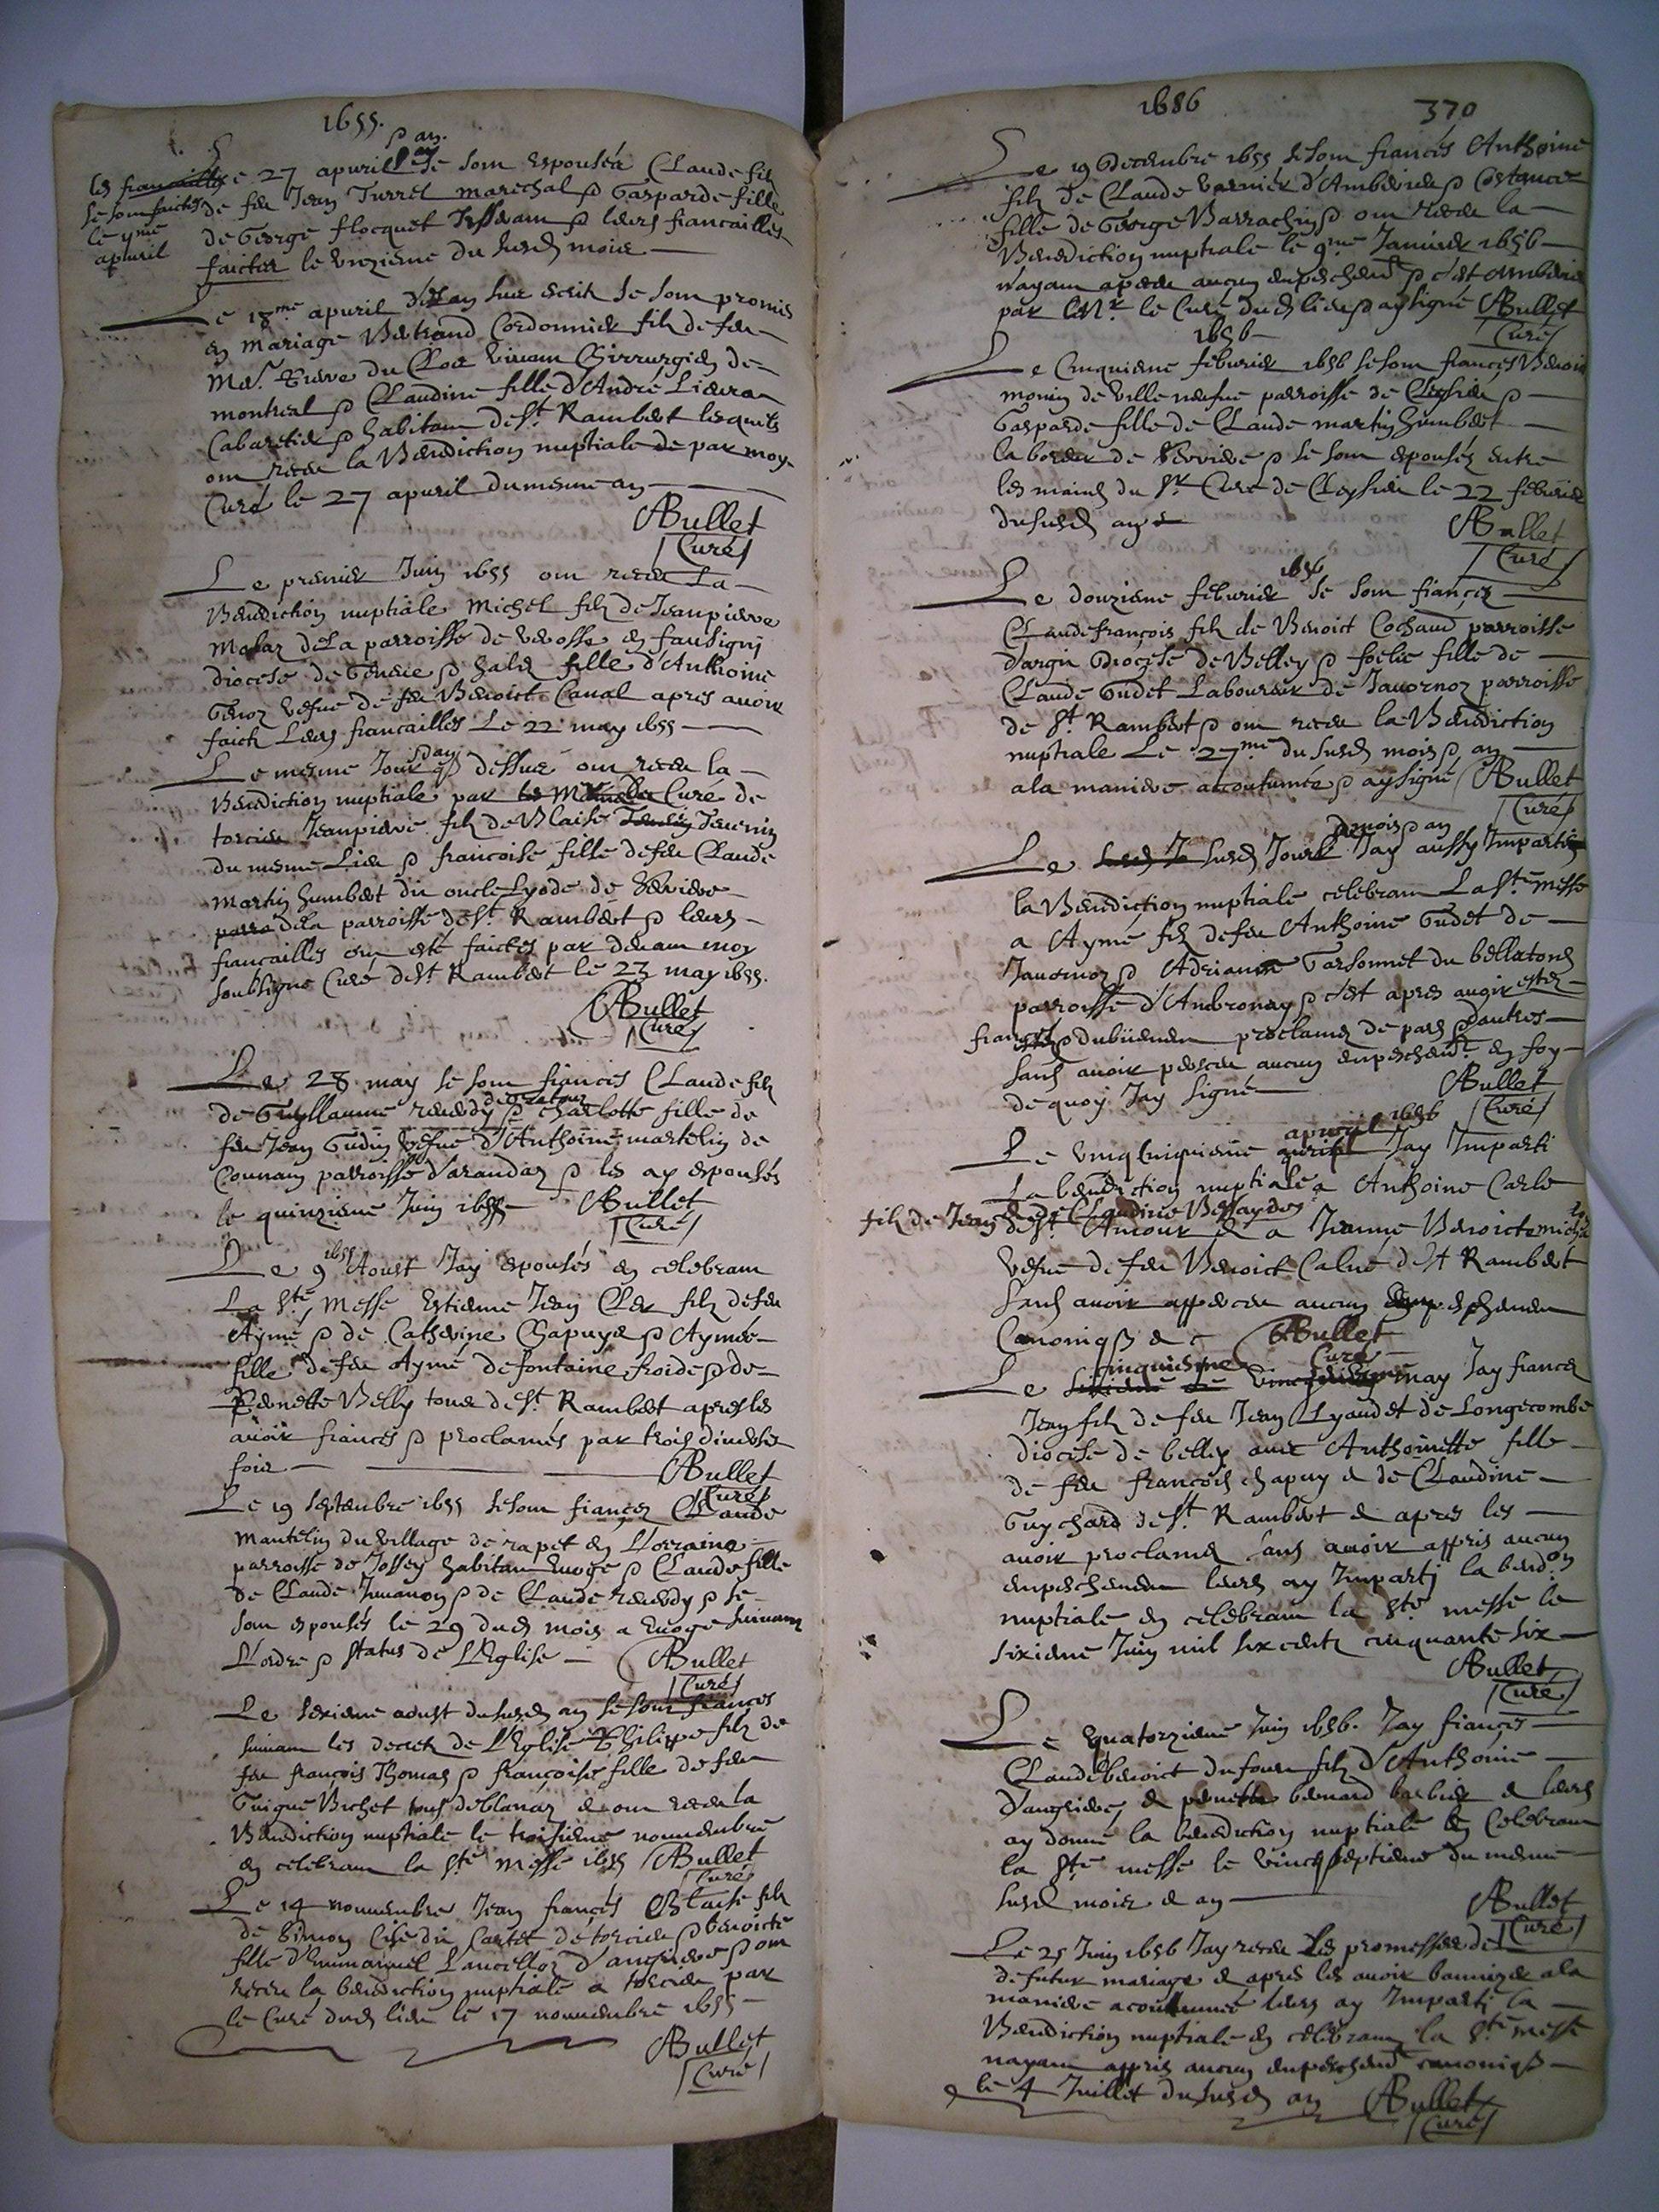 1655.
& an
Le 27 apuril se som espousés Claude filz
les fiancailles
se som faictes
le yme
apuril
de feu Jean Turrel marechal & Gasparde fille
de George flocquet & leurs fiancailles
faictes le unzieme du susd mois
Le 18me apuril de lan sus escrit se som promis
en mariage Bertrand Cordonnier filz de feu
Me. du Clos vivam Chirurgien de
montreal & Claudine fille d'André
Cabaretier & habitam de St Rambert lesquels
om receu la Benediction nuptiale de par moy
Curé le 27 apuril du mesme an
ABullet
Curé
Le premier Juin 1655 om receu La
Benediction nuptiale Michel filz de Jeanpierre
de La parroisse de en fausigni
diocese de Geneve & fille d'Anthoine
vefue de feu Benoict Canal apres auoir
faict Leurs fiancailles Le 22 may 1655
Le mesme Jour & an que dessus om receu la
Benediction nuptiale par Curé de
torcieu Jeanpierre filz de Blaise
du mesme Lieu & francoise fille de feu Claude
martin humbert dit oncle Lyode de Serriere
de la parroisse de St Rambert & leurs
fiancailles om esté faictes par deuam moy
soubsigné Curé de St Rambert le 23 may 1655.
ABullet
Curé
Le 28 may se som fiancés Claude filz
de Guyllaume reuerdy & Charlotte fille de
feu Jean Gudin vefue d'Anthoine martelin de
parroisse d'arandas & les ay espousés
le quinzieme Juin 1655 ABullet
Curé
1655
Le 9 Aoust Jay espousés en celebram
La Ste Messe Estienne Jean Cler filz de feu
Aymé & de Catherine Chapuys & Aymée
fille de feu Aymé de fontaine froide & de
Pernette Velly tous de St Rambert apres les
auoir fiancés & proclamés par trois diuerses
fois ABullet
Curé
Le 19 Septembre 1655 se som fiancez Claude
Mantelin du village de rapet en Lorraine
parroisse de Jossey habitam Euoge & Claude fille
de Claude Juuanon & de Claude reuerdy & se
som espousés le 29 dud mois a Euoge suiuam
L'ordre & status de L'Eglise ABullet
Curé
Le sezieme aoust du susd an se som fiancés
suiuam les decretz de L'Eglise Philippe filz de
feu françois Thomas & françoise fille de feu
Guigue Bichet tous de blanaz & om receu la
Benediction nuptiale le troisieme nouuembre
en celebram la Ste Messe 1655 ABullet
Curé
Le 14 nouuembre Jean fiancés Blaise filz
de Simon Cise du Cartet de torcieu & benoicte
fille d'Emmanuel Lancelloz d'angrieres & om
receu la benediction nuptiale a torcieu par
le Curé dud lieu le 17 nouuembre 1655
ABullet
Curé
1686 370
Le 19 Decembre 1655 se som fiancés Anthoine
filz de Claude varnier d'Amberieu & Costance
fille de George Barrachin & om receu la
Benediction nuptiale le 9me Januier 1656
n'ayam apreu aucun empeschemt & c'est Amberieu
par Mr. le Curé dud lieu & ay signé ABullet
Curé
1656
Le Cinquieme feburier 1656 se som fiancés Benoict
monin de Ville neufue parroisse de Cleysieu &
Gasparde fille de Claude martin humbert
laboreur de Serriere & se som espousez entre
les mains du Sr Curé de Cleysieu le 22 feburier
du susd an ABullet
Curé
1656
Le douzieme feburier se som fiançez
Claudefrançois filz de Benoict Cochaud parroisse
d'argis Diocese de Belley & foelie fille de
Claude Gudet Laboureur de Jauornoz parroisse
de St Rambert & om receu la Benediction
nuptiale Le 27me du susd mois & an
a la maniere acoutumée & ay signé ABullet
Curé
de mois & an
Le susd Jour Jay aussy Imparti
la Benediction nuptiale celebram La Ste messe
a Aymé filz de feu Anthoine Gudet de
Jauornoz & Adrianne Garsonnet du bellatons
parroisse d'Ambronay & c'est apres auoir estez
fiancés & dubüemen proclamez de pars & d'autres
sans auoir perceu aucun empeschemt en foy
de quoy Jay signé ABullet
Curé
apuril 1656
Le vinqcinquieme Jay Imparti
La benediction nuptiale a Anthoine Carle
filz de Jean & de Claudine Vessaydes
de St. Amour & a Jeanne Benoicte
vefue de feu Benoict Calué de St Rambert
sans auoir apperceu aucun empeschemen
Canonique & c ABullet
Curé
cinquiesme
Le may Jay fiancez
Jean filz de feu Jean Lyaudet de Longecombe
diocese de belley auec Anthoinette fille
de feu François chapuy & de Claudine
Guychard de St. Rambert & apres les
auoir proclamez sans auoir appris aucun
empeschemen leurs ay Imparti la bendon
nuptiale en celebram la Ste messe le
sixieme Juin mil six cents cinquante six
ABullet
Curé
Le quatorzieme Juin 1656. Jay fiançés
Claudebenoict du four filz d'Anthoine
d'angrieres & pernette bernard barbier & leurs
ay donné la benediction nuptiale en Celebram
la Ste messe le vinctseptieme du meme
susd mois & an ABullet
Curé
Le 25 Juin 1656 Jay receu Les promesses de
de futur mariage & apres les auoir bannizés a la
maniere acoutumée leurs ay Imparti la
Benediction nuptiale en celebram la Ste messe
nayam appris aucun empeschemt canonique
le 4 Juillet du susd an ABullet
Curé